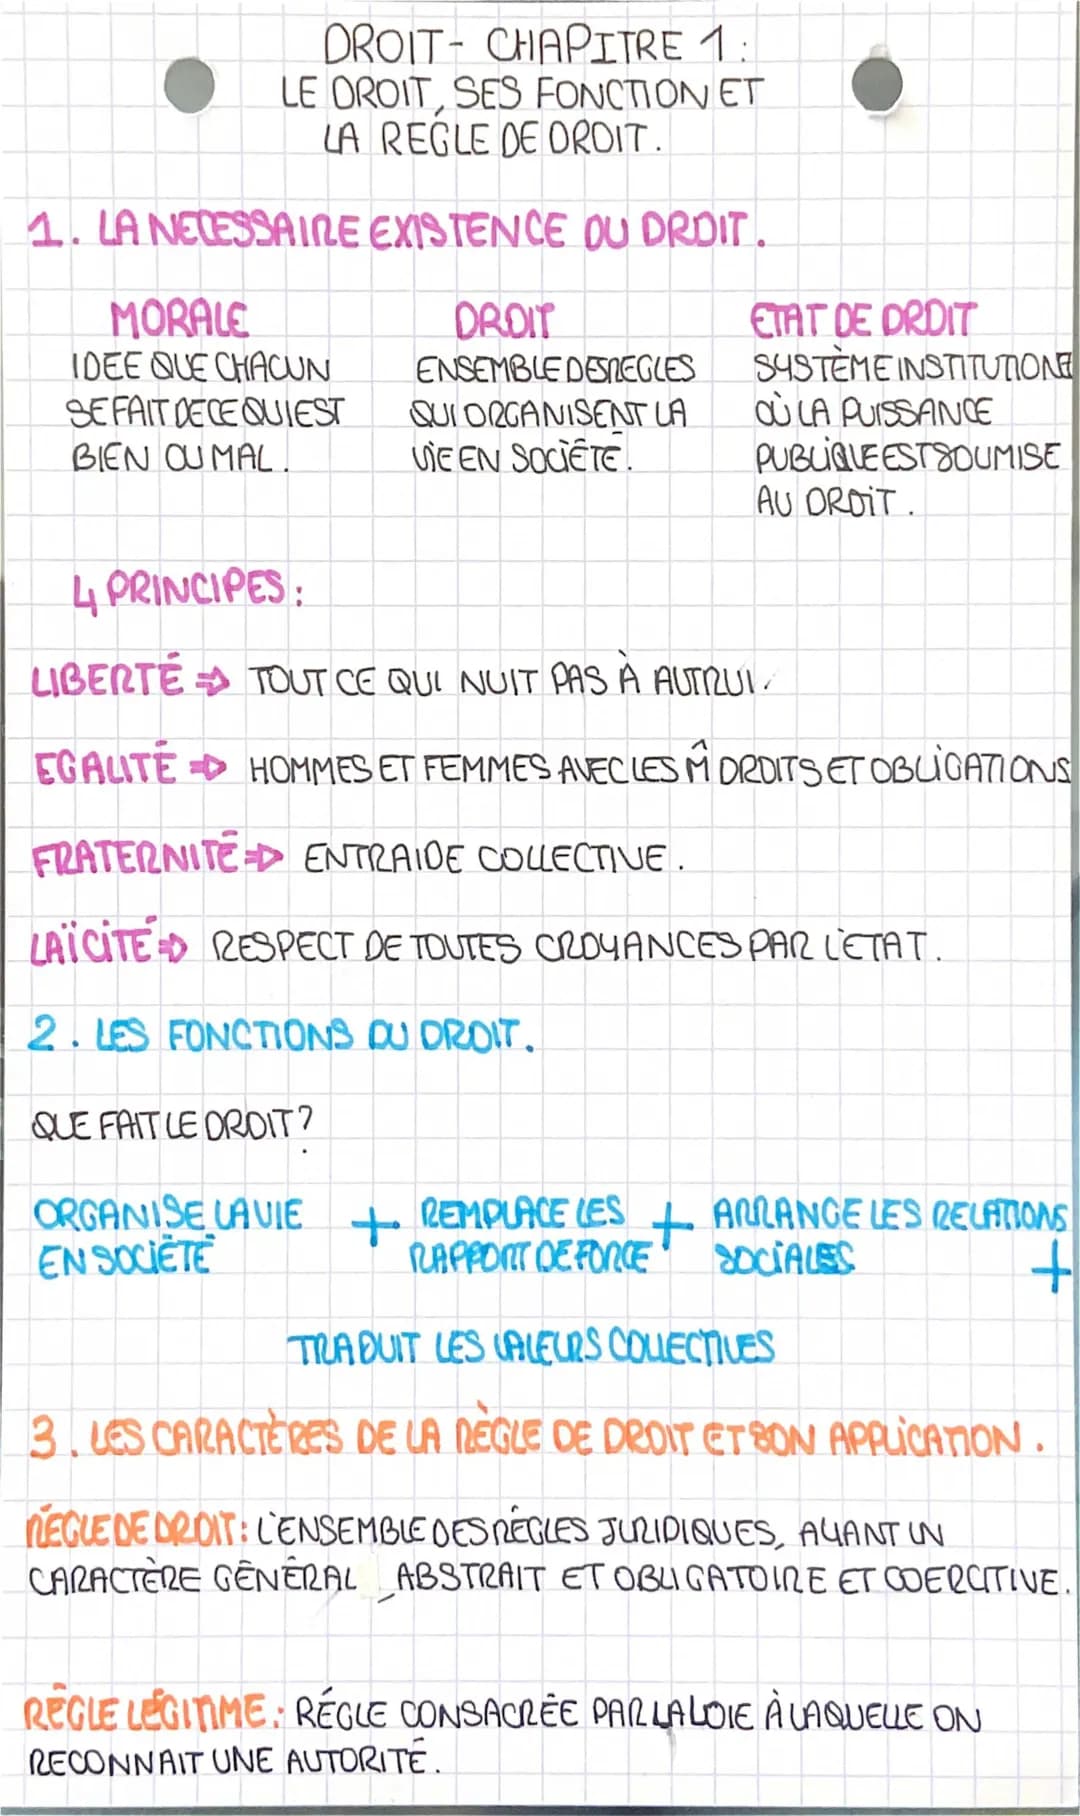 DROIT - CHAPITRE 1 :
LE DROIT, SES FONCTION ET
LA REGLE DE DROIT.
1. LA NECESSAIRE EXISTENCE DU DROIT.
MORALE
IDEE QUE CHACUN
SE FAIT DE CE QUI EST
BIEN OU MAL.
DROIT
ENSEMBLE DES REGLES
QUI ORGANISENT LA
VIE EN SOCIÉTÉ.
ETAT DE DROIT
SYSTÈME INSTITUTIONEL
OÙ LA PUISSANCE
PUBLIQUE EST SOUMISE
AU DROIT.
4 PRINCIPES :
LIBERTÉ ⇒ TOUT CE QUI NUIT PAS À AUTRUI.
EGALITÉ ⇒ HOMMES ET FEMMES AVEC LES M̂ DROITS ET OBLIGATIONS
FRATERNITÉ ⇒ ENTRAIDE COLLECTIVE.
LAÏCITÉ ⇒ RESPECT DE TOUTES CROYANCES PAR L'ETAT.
2. LES FONCTIONS DU DROIT.
QUE FAIT LE DROIT ?
ORGANISE LA VIE
EN SOCIÉTÉ
+
REMPLACE LES
RAPPORT DE FORCE
+
ARRANGE LES RELATIONS
SOCIALES
+
TRADUIT LES VALEURS COLLECTIVES
3. LES CARACTÈRES DE LA RÈGLE DE DROIT ET SON APPLICATION.
RÉGLE DE DROIT : L'ENSEMBLE DES RÉGLES JURIDIQUES, AYANT UN
CARACTÈRE GÉNÉRAL, ABSTRAIT ET OBLIGATOIRE ET COERCITIVE.
RÉGLE LÉGITIME : RÉGLE CONSACRÉE PAR LA LOIE À LAQUELLE ON
RECONNAIT UNE AUTORITÉ.